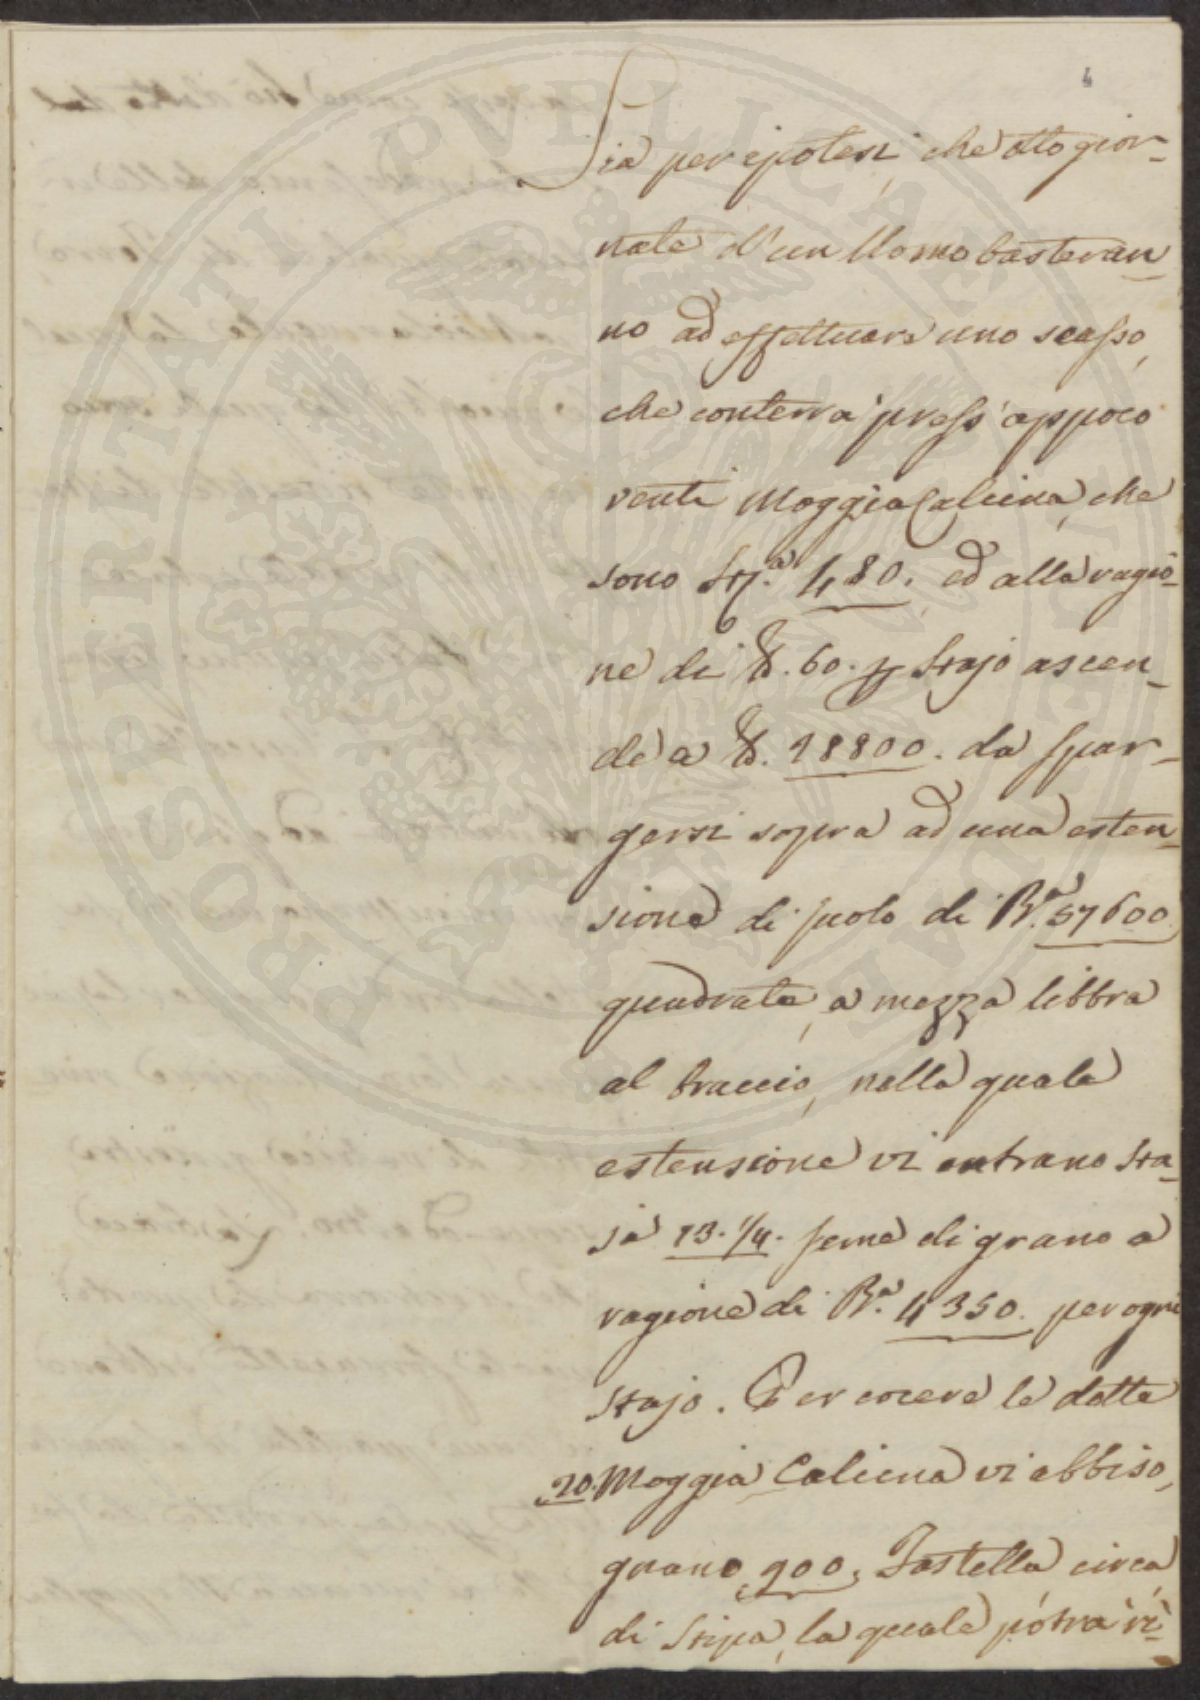 4
Sia per ipotesi, che otto gior-
nate d'un Uomo basteran-
no ad effettuare uno scasso,
che conterrà press'appoco
venti Moggia Calcina, che
sono Stj.ª 480. ed alla ragio-
ne di ℔. 60. p Stajo ascen-
de a ℔. 28800. da spar-
gersi sopra ad una esten-
sione di suolo di B.ª 57600
quadrate, a mezza libbra
al braccio, nella quale
estensione vi entrano Sta-
ja 13.1/4. seme di grano a
ragione di B.ª 4350. per ogni
Stajo. Per cocere le dette
20. Moggia Calcina vi abbiso-
gnano 900. Fastella circa
di Stipa, la quale potrà ri-
PROSPERITATI PVBLICAE AVGENDAE